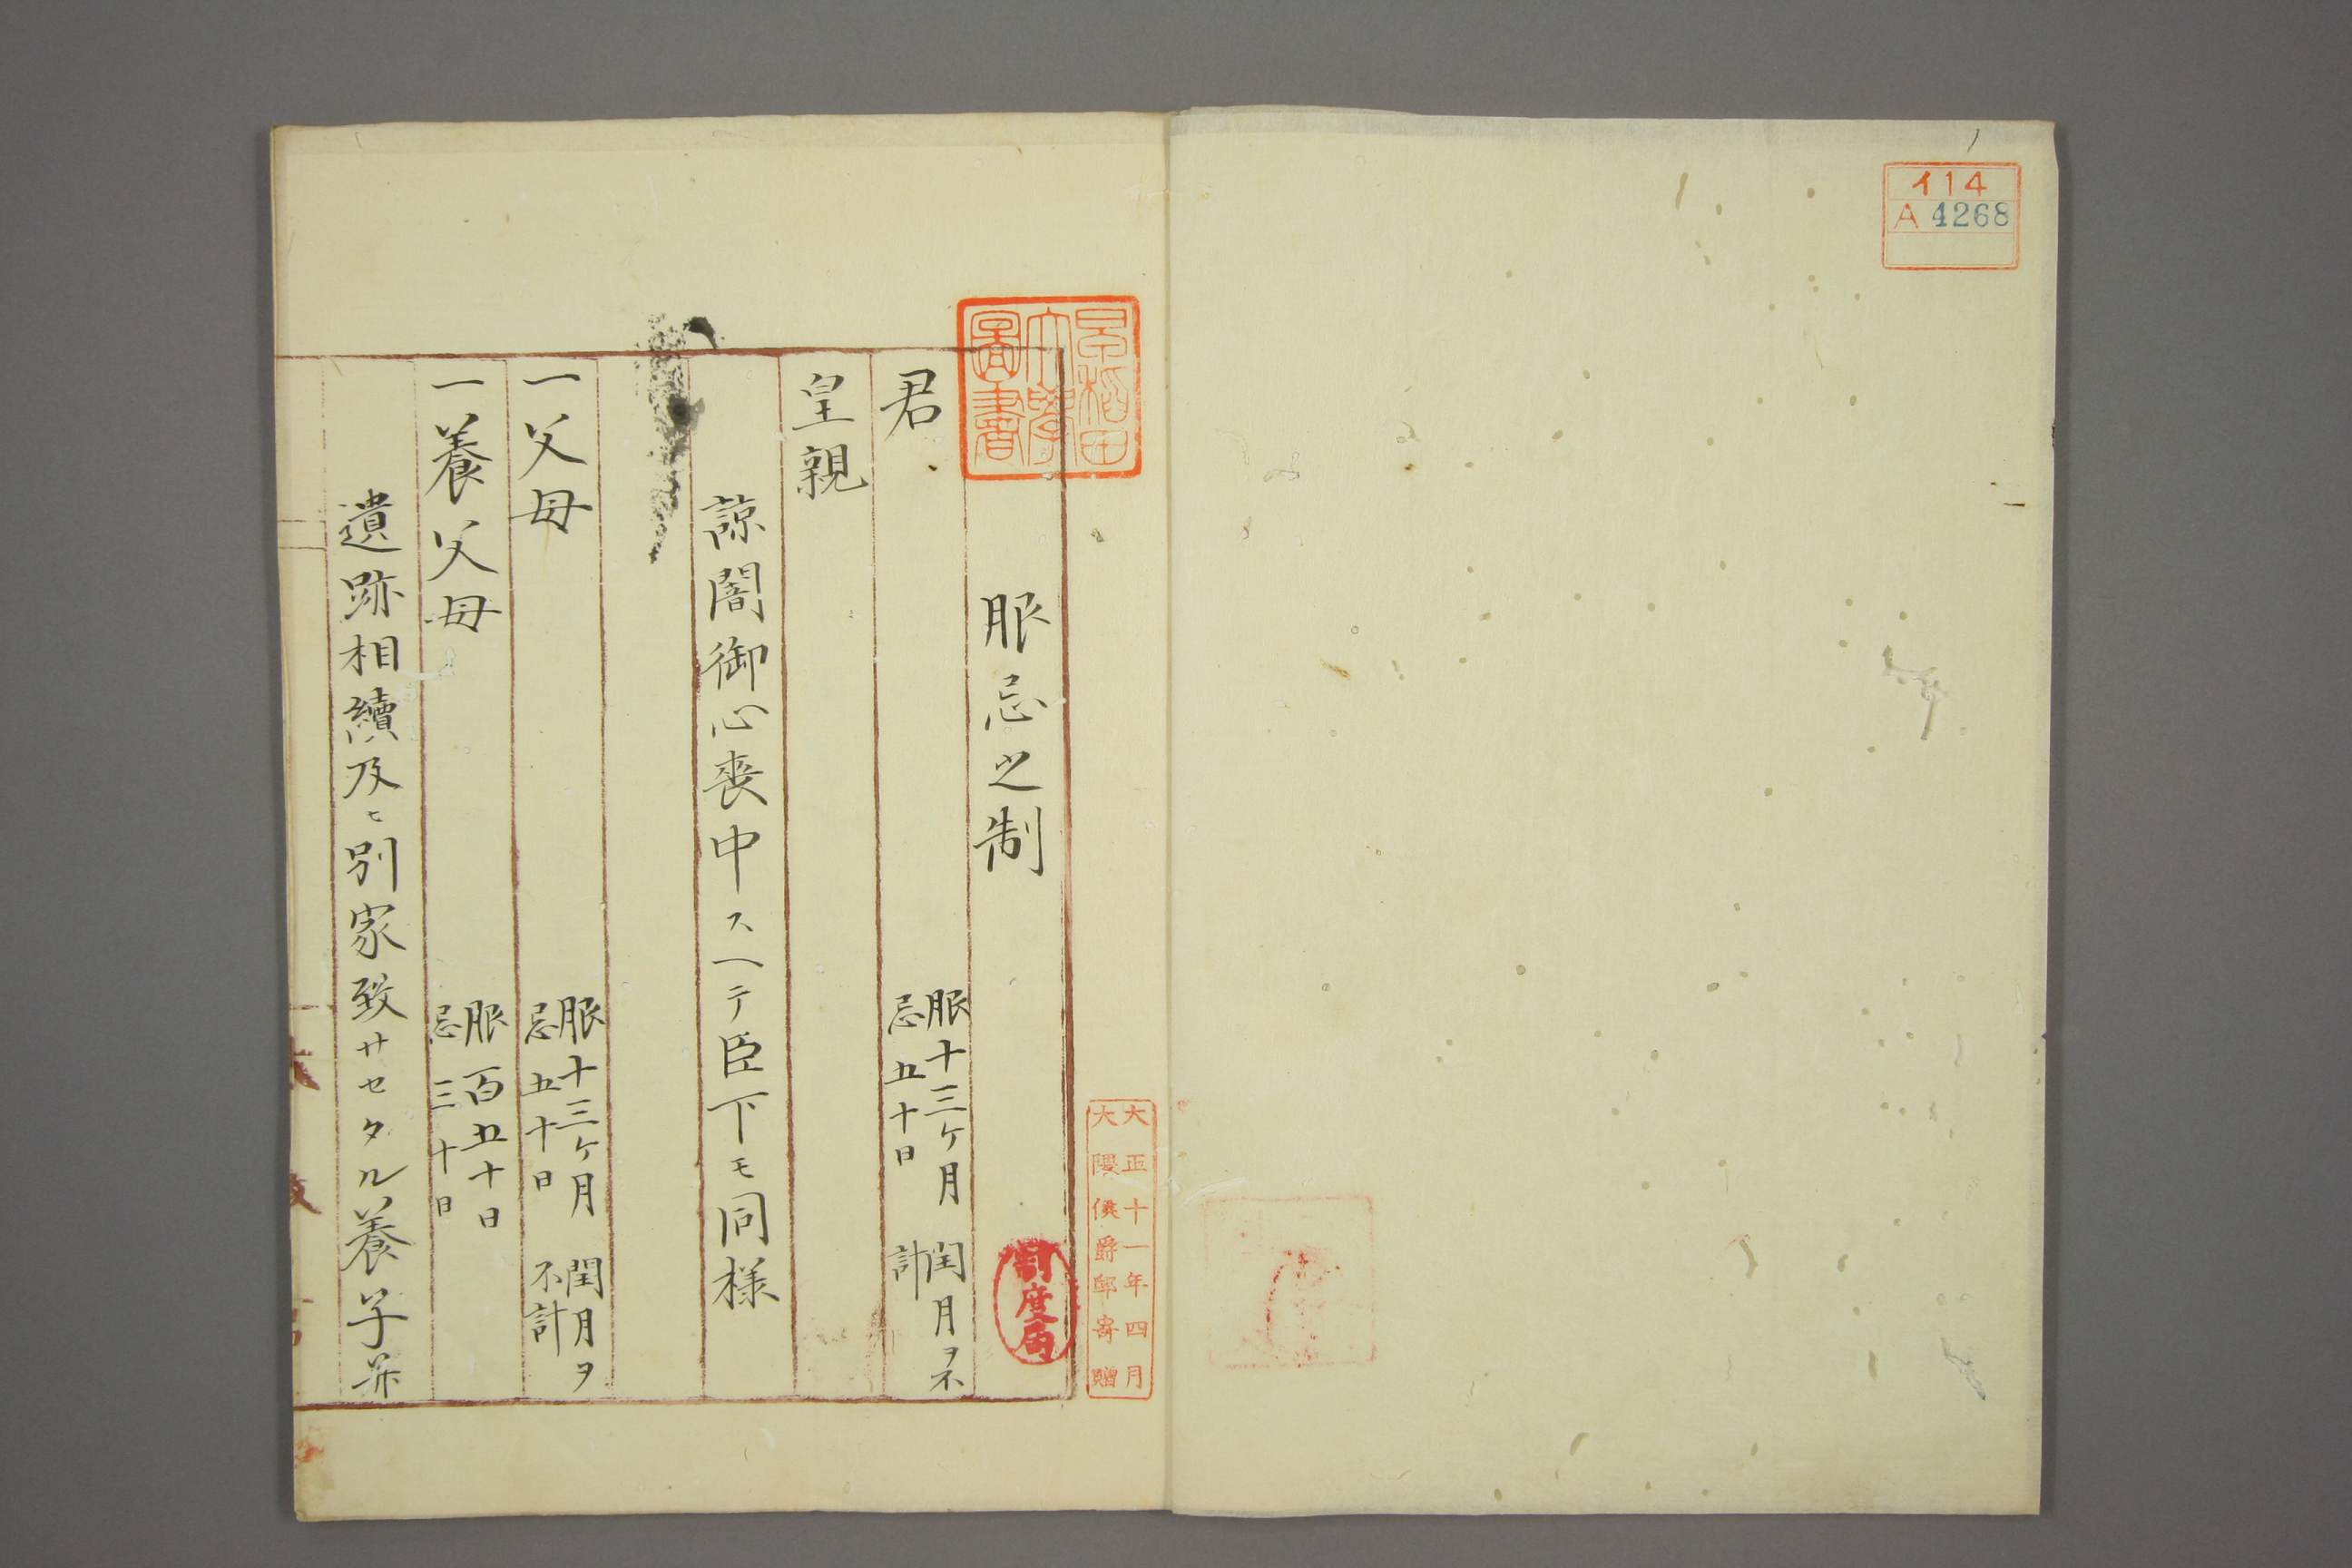 イ14
A 4268
早稲田
大學
圖書
大正十一年四月
大隈侯爵邸寄贈
服忌之制
制度局
君 服十三ケ月 閏月ヲ不
忌五十日 計
皇親
諒闇御心喪中スヘテ臣下モ同様
一父母 服十三ケ月 閏月ヲ
忌五十日 不計
一養父母 服百五十日
忌三十日
遺跡相續及ヒ別家致サセタル養子并